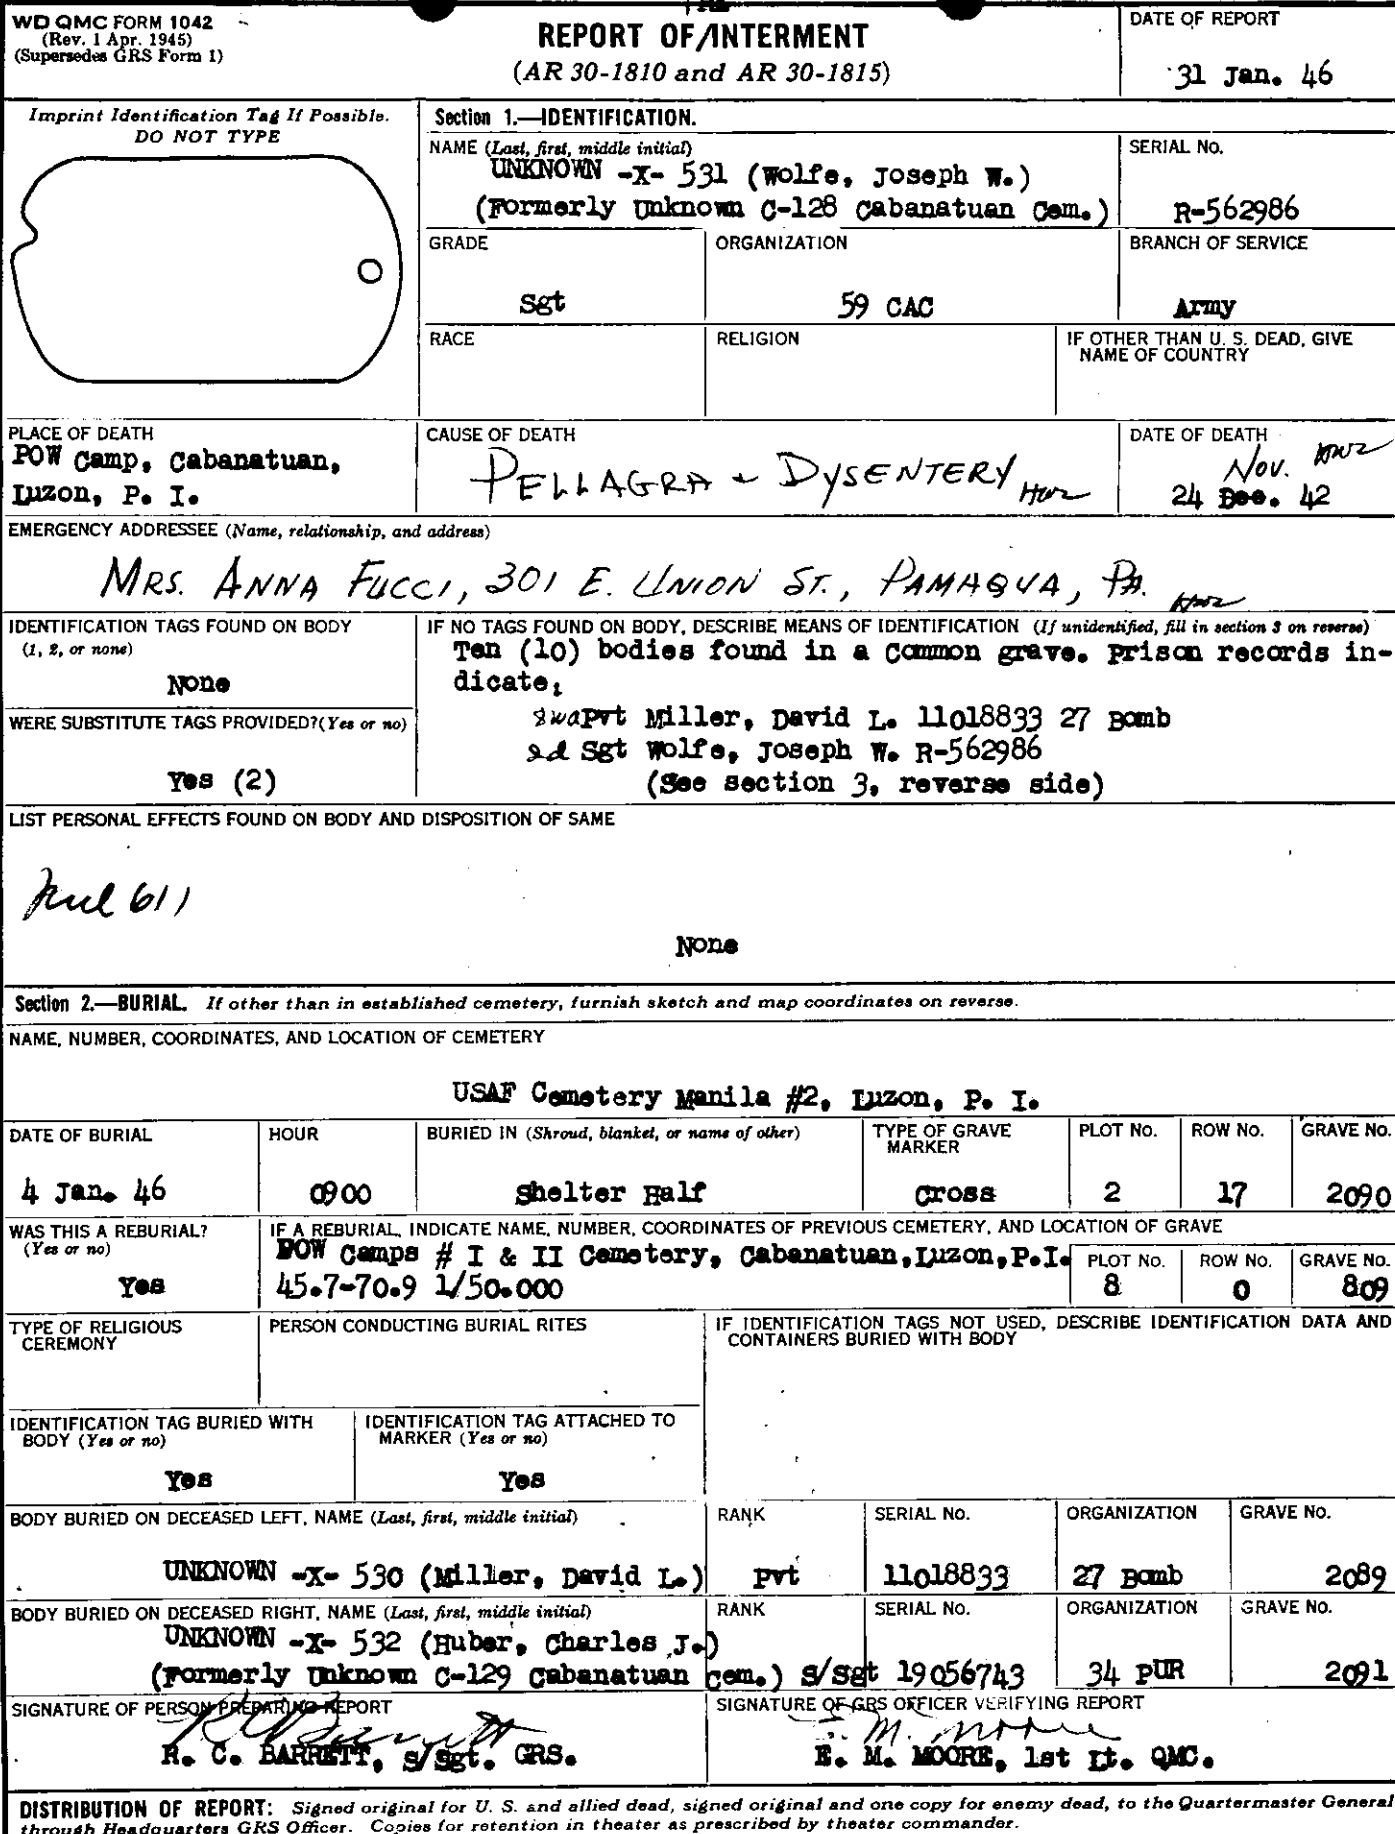 WD QMC FORM 1042
(Rev. 1 Apr. 1945)
(Supersedes GRS Form 1)
REPORT OF INTERMENT
(AR 30-1810 and AR 30-1815)
DATE OF REPORT
31 Jan. 46
Imprint Identification Tag If Possible.
DO NOT TYPE
Section 1.—IDENTIFICATION.
NAME (Last, first, middle initial)
UNKNOWN -X- 531 (Wolfe, Joseph W.)
(Formerly Unknown C-128 Cabanatuan Cem.)
SERIAL No.
R-562986
GRADE
Sgt
ORGANIZATION
59 CAC
BRANCH OF SERVICE
Army
RACE
RELIGION
IF OTHER THAN U. S. DEAD, GIVE
NAME OF COUNTRY
PLACE OF DEATH
POW Camp, Cabanatuan,
Luzon, P. I.
CAUSE OF DEATH
PELLAGRA & DYSENTERY
DATE OF DEATH
Nov.
24 Dec. 42
EMERGENCY ADDRESSEE (Name, relationship, and address)
MRS. ANNA FUCCI, 301 E. UNION ST., PAMAQUA, PA.
IDENTIFICATION TAGS FOUND ON BODY
(1, 2, or none)
None
IF NO TAGS FOUND ON BODY, DESCRIBE MEANS OF IDENTIFICATION (If unidentified, fill in section 3 on reverse)
Ten (10) bodies found in a Common grave. Prison records in-
dicate:
Pvt Miller, David L. 11018833 27 Bomb
Sgt Wolfe, Joseph W. R-562986
(See section 3, reverse side)
WERE SUBSTITUTE TAGS PROVIDED? (Yes or no)
Yes (2)
LIST PERSONAL EFFECTS FOUND ON BODY AND DISPOSITION OF SAME
611
None
Section 2.—BURIAL. If other than in established cemetery, furnish sketch and map coordinates on reverse.
NAME, NUMBER, COORDINATES, AND LOCATION OF CEMETERY
USAF Cemetery Manila #2, Luzon, P. I.
DATE OF BURIAL
4 Jan. 46
HOUR
0900
BURIED IN (Shroud, blanket, or name of other)
Shelter Half
TYPE OF GRAVE
MARKER
Cross
PLOT No.
2
ROW No.
17
GRAVE No.
2090
WAS THIS A REBURIAL?
(Yes or no)
Yes
IF A REBURIAL, INDICATE NAME, NUMBER, COORDINATES OF PREVIOUS CEMETERY, AND LOCATION OF GRAVE
POW Camps # I & II Cemetery, Cabanatuan, Luzon, P.I.
45.7-70.9 1/50.000
PLOT No.
8
ROW No.
0
GRAVE No.
809
TYPE OF RELIGIOUS
CEREMONY
PERSON CONDUCTING BURIAL RITES
IF IDENTIFICATION TAGS NOT USED, DESCRIBE IDENTIFICATION DATA AND
CONTAINERS BURIED WITH BODY
IDENTIFICATION TAG BURIED WITH
BODY (Yes or no)
Yes
IDENTIFICATION TAG ATTACHED TO
MARKER (Yes or no)
Yes
BODY BURIED ON DECEASED LEFT, NAME (Last, first, middle initial)
UNKNOWN -X- 530 (Miller, David L.)
RANK
Pvt
SERIAL No.
11018833
ORGANIZATION
27 Bomb
GRAVE No.
2089
BODY BURIED ON DECEASED RIGHT, NAME (Last, first, middle initial)
UNKNOWN -X- 532 (Huber, Charles J.)
(Formerly Unknown C-129 Cabanatuan Cem.)
RANK
S/Sgt
SERIAL No.
19056743
ORGANIZATION
34 PUR
GRAVE No.
2091
SIGNATURE OF PERSON PREPARING REPORT
R. C. BARRETT, S/Sgt. GRS.
SIGNATURE OF GRS OFFICER VERIFYING REPORT
E. M. MOORE, 1st Lt. QMC.
DISTRIBUTION OF REPORT: Signed original for U. S. and allied dead, signed original and one copy for enemy dead, to the Quartermaster General
through Headquarters GRS Officer. Copies for retention in theater as prescribed by theater commander.